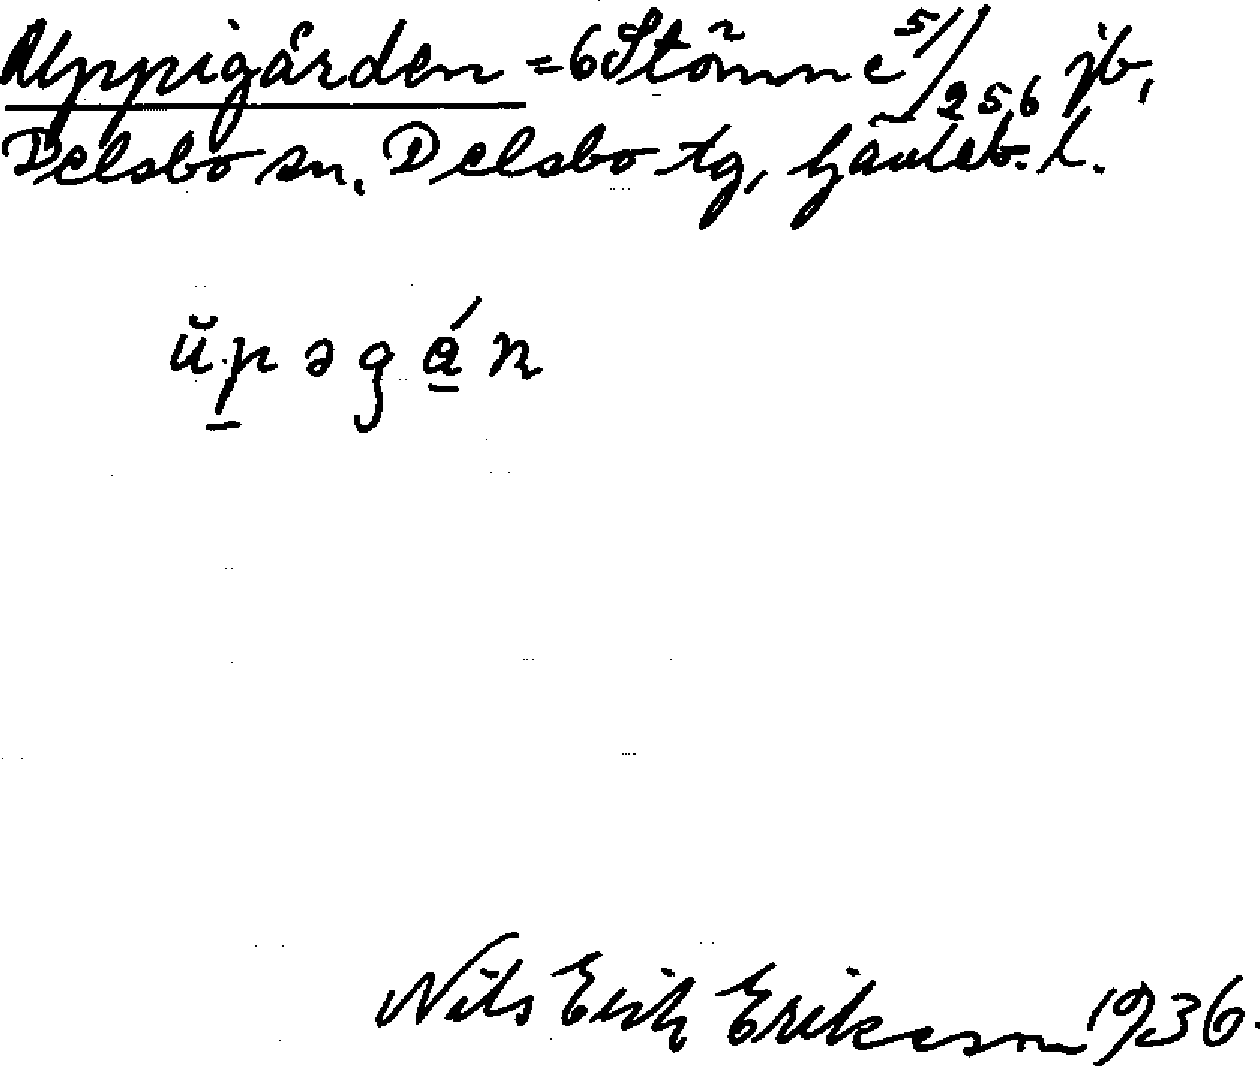 Uppigården = 6 Stömne 5/256 jb,
Delsbo sn. Delsbo tg, Gävleb. l.
ŭpəgán
Nils Erik Eriksson 1936.